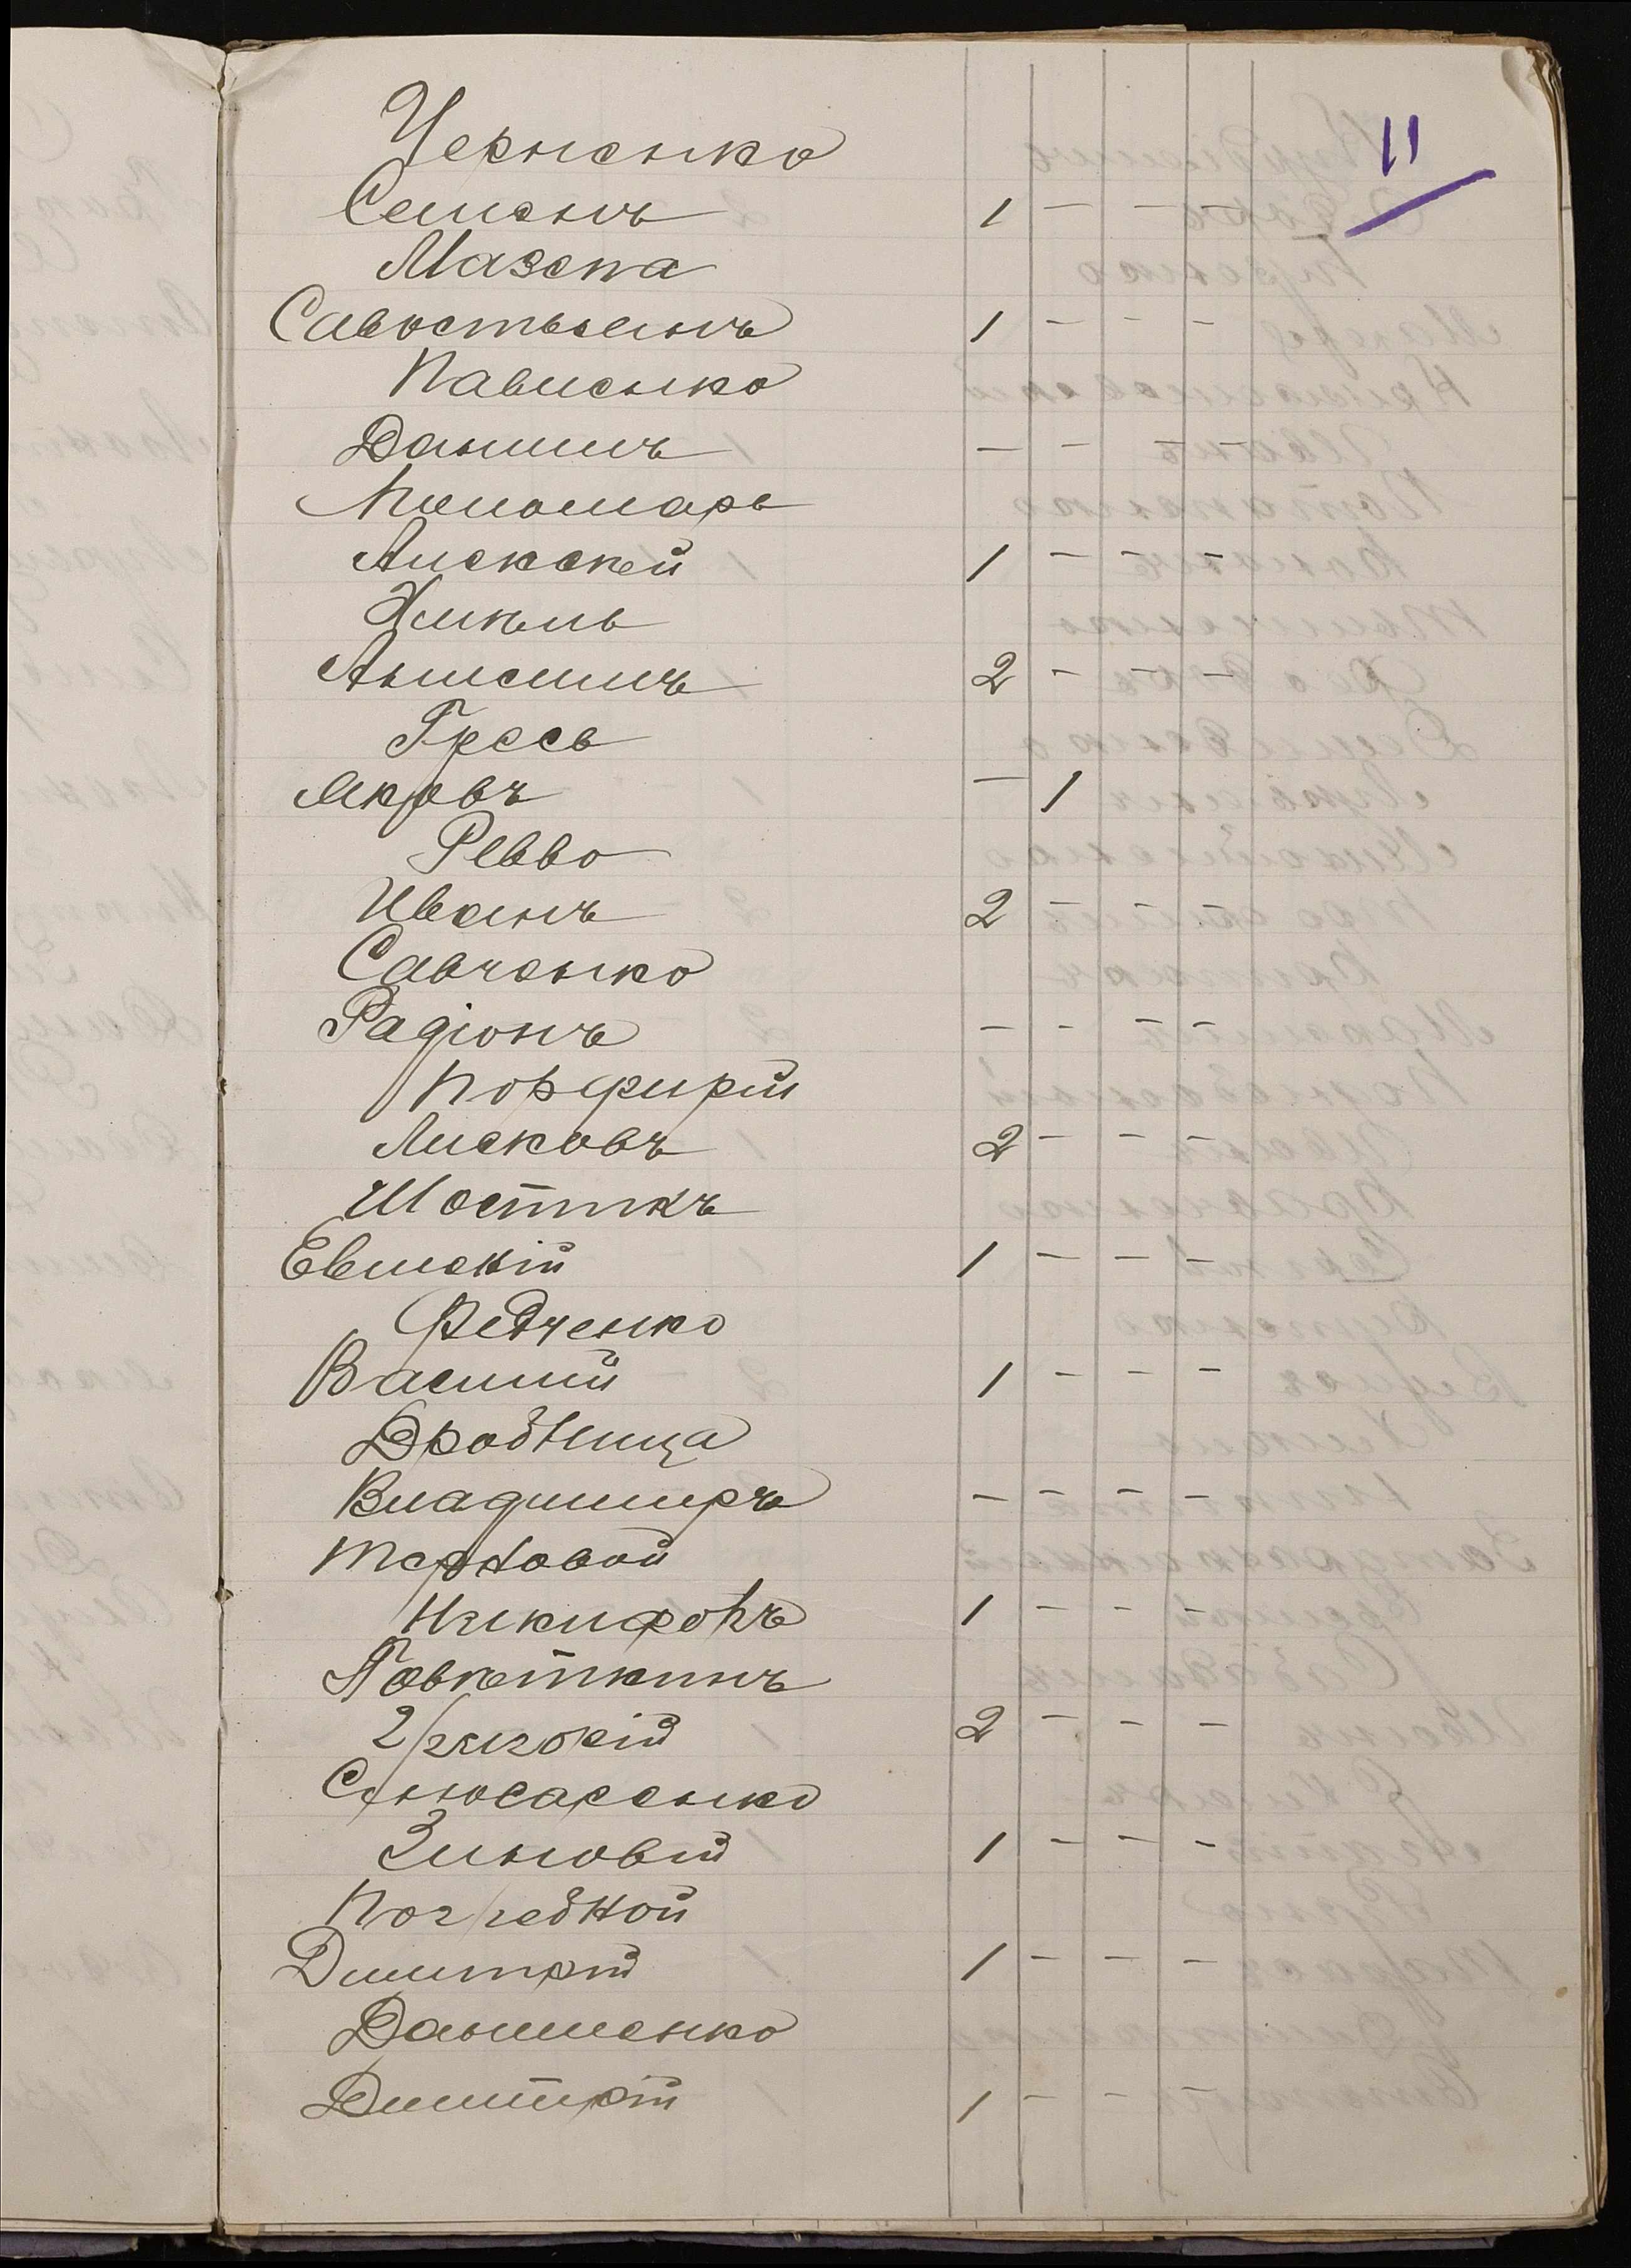 11
Черненко
Семенъ 1 - - -
Мазепа
Савостьянъ 1 - - -
Павленко
Даниилъ - - - -
Пономарь
Алексей 1 - - -
Хмкель
Анисимъ 2 - - -
Гресь
Яковъ - 1
Ревво
Иванъ 2 - - -
Савченко
Радіонъ - - - -
Порфирій
Лисковъ 2 - - -
Шостикъ
Евмекій 1 - - -
Федченко
Василій 1 - - -
Дробница
Владимиръ - - - -
Терновой
Никифоръ 1 - - -
Говяткинъ
Григорій 2 - - -
Слюсаренко
Зиновій 1 - - -
Погребной
Димитрій 1 - - -
Даниленко
Димитрій 1 - - -